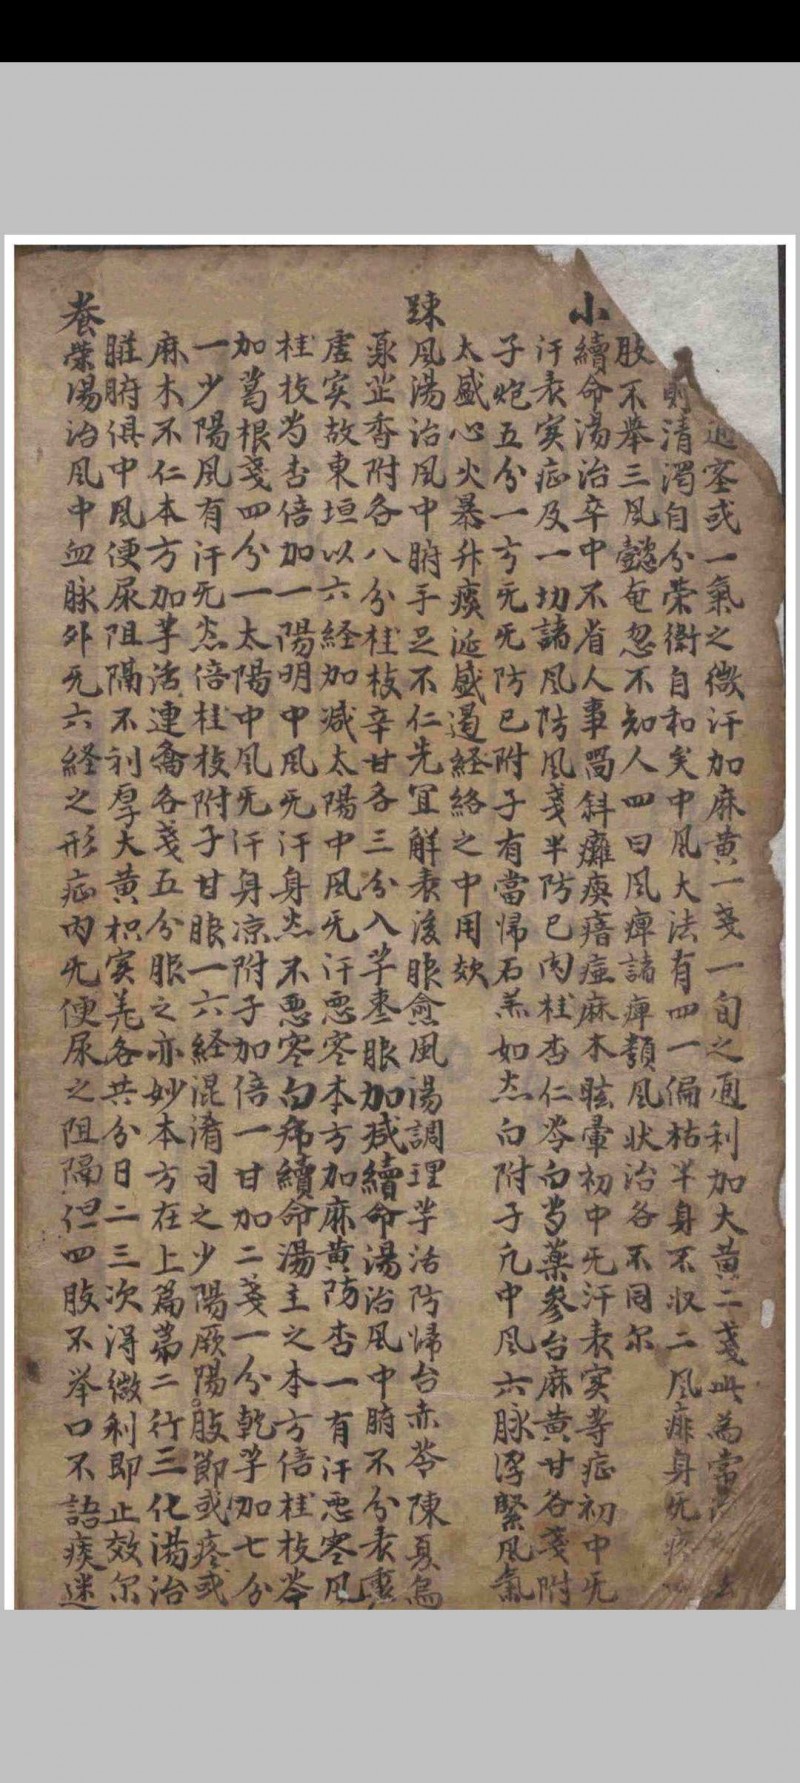 迊塞或一氣之微汗加麻黄一戔一旬之通利加大黄二戔此為常
則清濁自分榮衛自和矣中風大法有四一偏枯半身不収二風痱身旡疼
肢不舉三風懿奄忽不知人四曰風痺諸痺類風状治各不同尔
小續命湯治卒中不省人事喎斜癱瘓瘖瘂麻木眩暈初中旡汗表実等症初中旡
汗表実症及一切諸風防風戔半防已肉桂杏仁芩白芍藥参台麻黄甘各戔附
子炮五分一方旡旡防已附子有當帰石羔如杰白附子凢中風六脉浮緊風氣
太盛心火暴升痰涎盛遏経絡之中用欬
踈風湯治風中腑手足不仁先宜觧表後服愈風湯調理芋活防帰台赤苓陳夏烏
藁芷香附各八分桂枝辛甘各三分入芋枣服加减續命湯治風中腑不分表裏
虚实故東垣以六経加减太陽中風旡汗悪寒本方加麻黄防杏一有汗悪寒風
桂枝芍杏倍加一陽明中風旡汗身杰不悪寒白芍續命湯主之本方倍桂枝芩
加葛根戔四分一太陽中風旡汗身凉附子加倍一甘加二戔一分乾芋加七分
一少陽風有汗旡杰倍桂枝附子甘服一六経混淆司之少陽厥陽肢節或疼或
麻木不仁本方加芋活連翕各戔五分服之亦妙本方在上篇第二行三化湯治
臟腑俱中風便尿阻隔不利厚大黄枳実羌各共分日二三次淂微利即止效尔
养荣湯治風中血脉外旡六経之形症内旡便尿之阻隔但四肢不举口不語痰迷